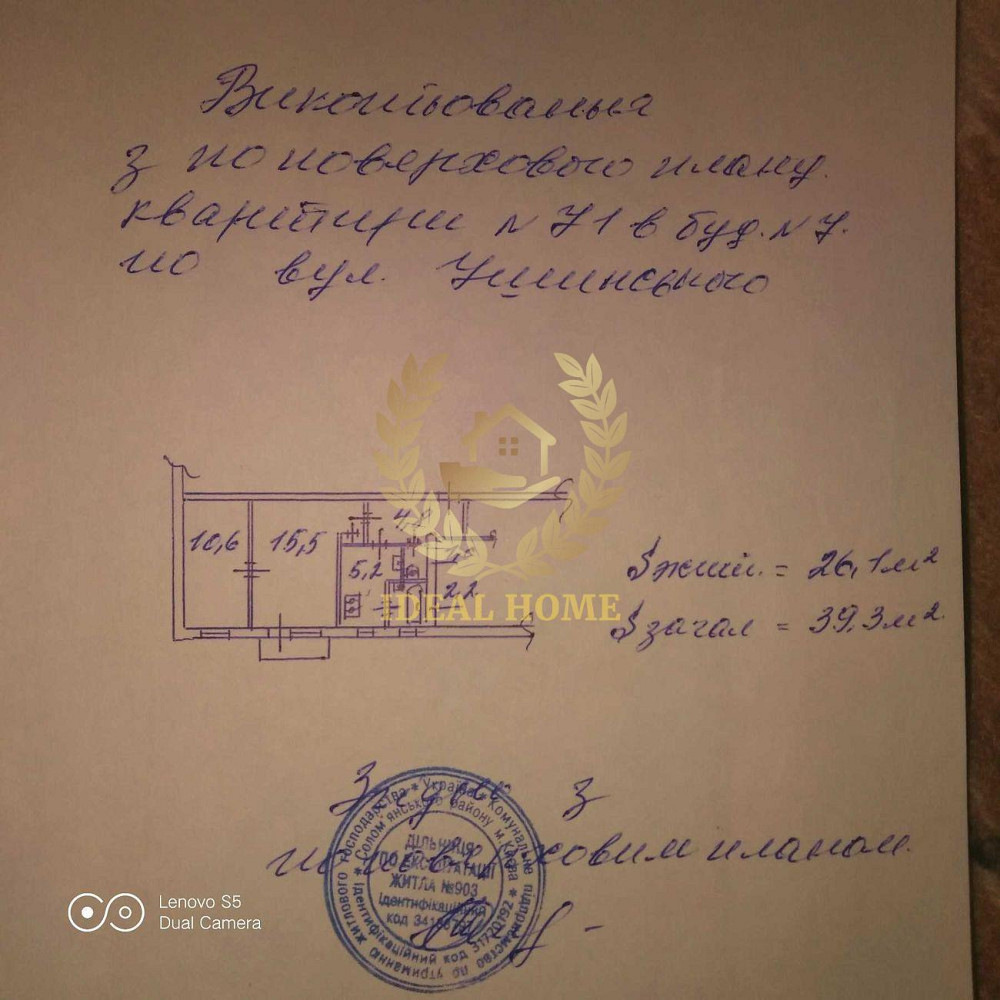 Викопіювання
з по поверхового плану.
квартири № 71 в буд. № 7.
по вул. Ушинського
10,6 15,5 5,2 2,2
S жил. = 26,1 м²
S загал = 39,3 м².
IDEAL HOME
з
по поверховим планом.
Україна * Комунальне підприємство по утриманню житлового господарства *
Солом'янського району м. Києва * Ідентифікаційний код 31720192 *
ДІЛЬНИЦЯ
ПО ЕКСПЛУАТАЦІЇ
ЖИТЛА №903
Ідентифікаційний
код
Lenovo S5
Dual Camera